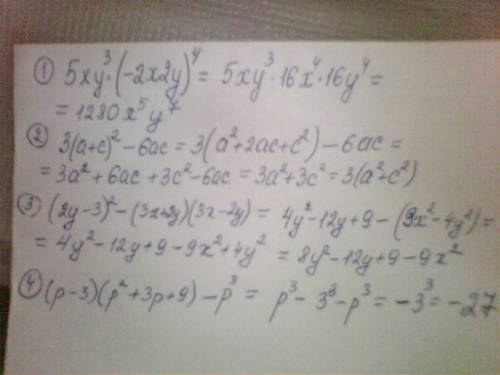 ① 5xy³·(-2x2y)⁴ = 5xy³·16x⁴·16y⁴ =
= 1280x⁵y⁷
② 3(a+c)² - 6ac = 3(a²+2ac+c²) - 6ac =
= 3a² + 6ac + 3c² - 6ac = 3a² + 3c² = 3(a²+c²)
③ (2y-3)² - (3x+2y)(3x-2y) = 4y² - 12y + 9 - (9x² - 4y²) =
= 4y² - 12y + 9 - 9x² + 4y² = 8y² - 12y + 9 - 9x²
④ (p-3)(p²+3p+9) - p³ = p³ - 3³ - p³ = -3³ = -27